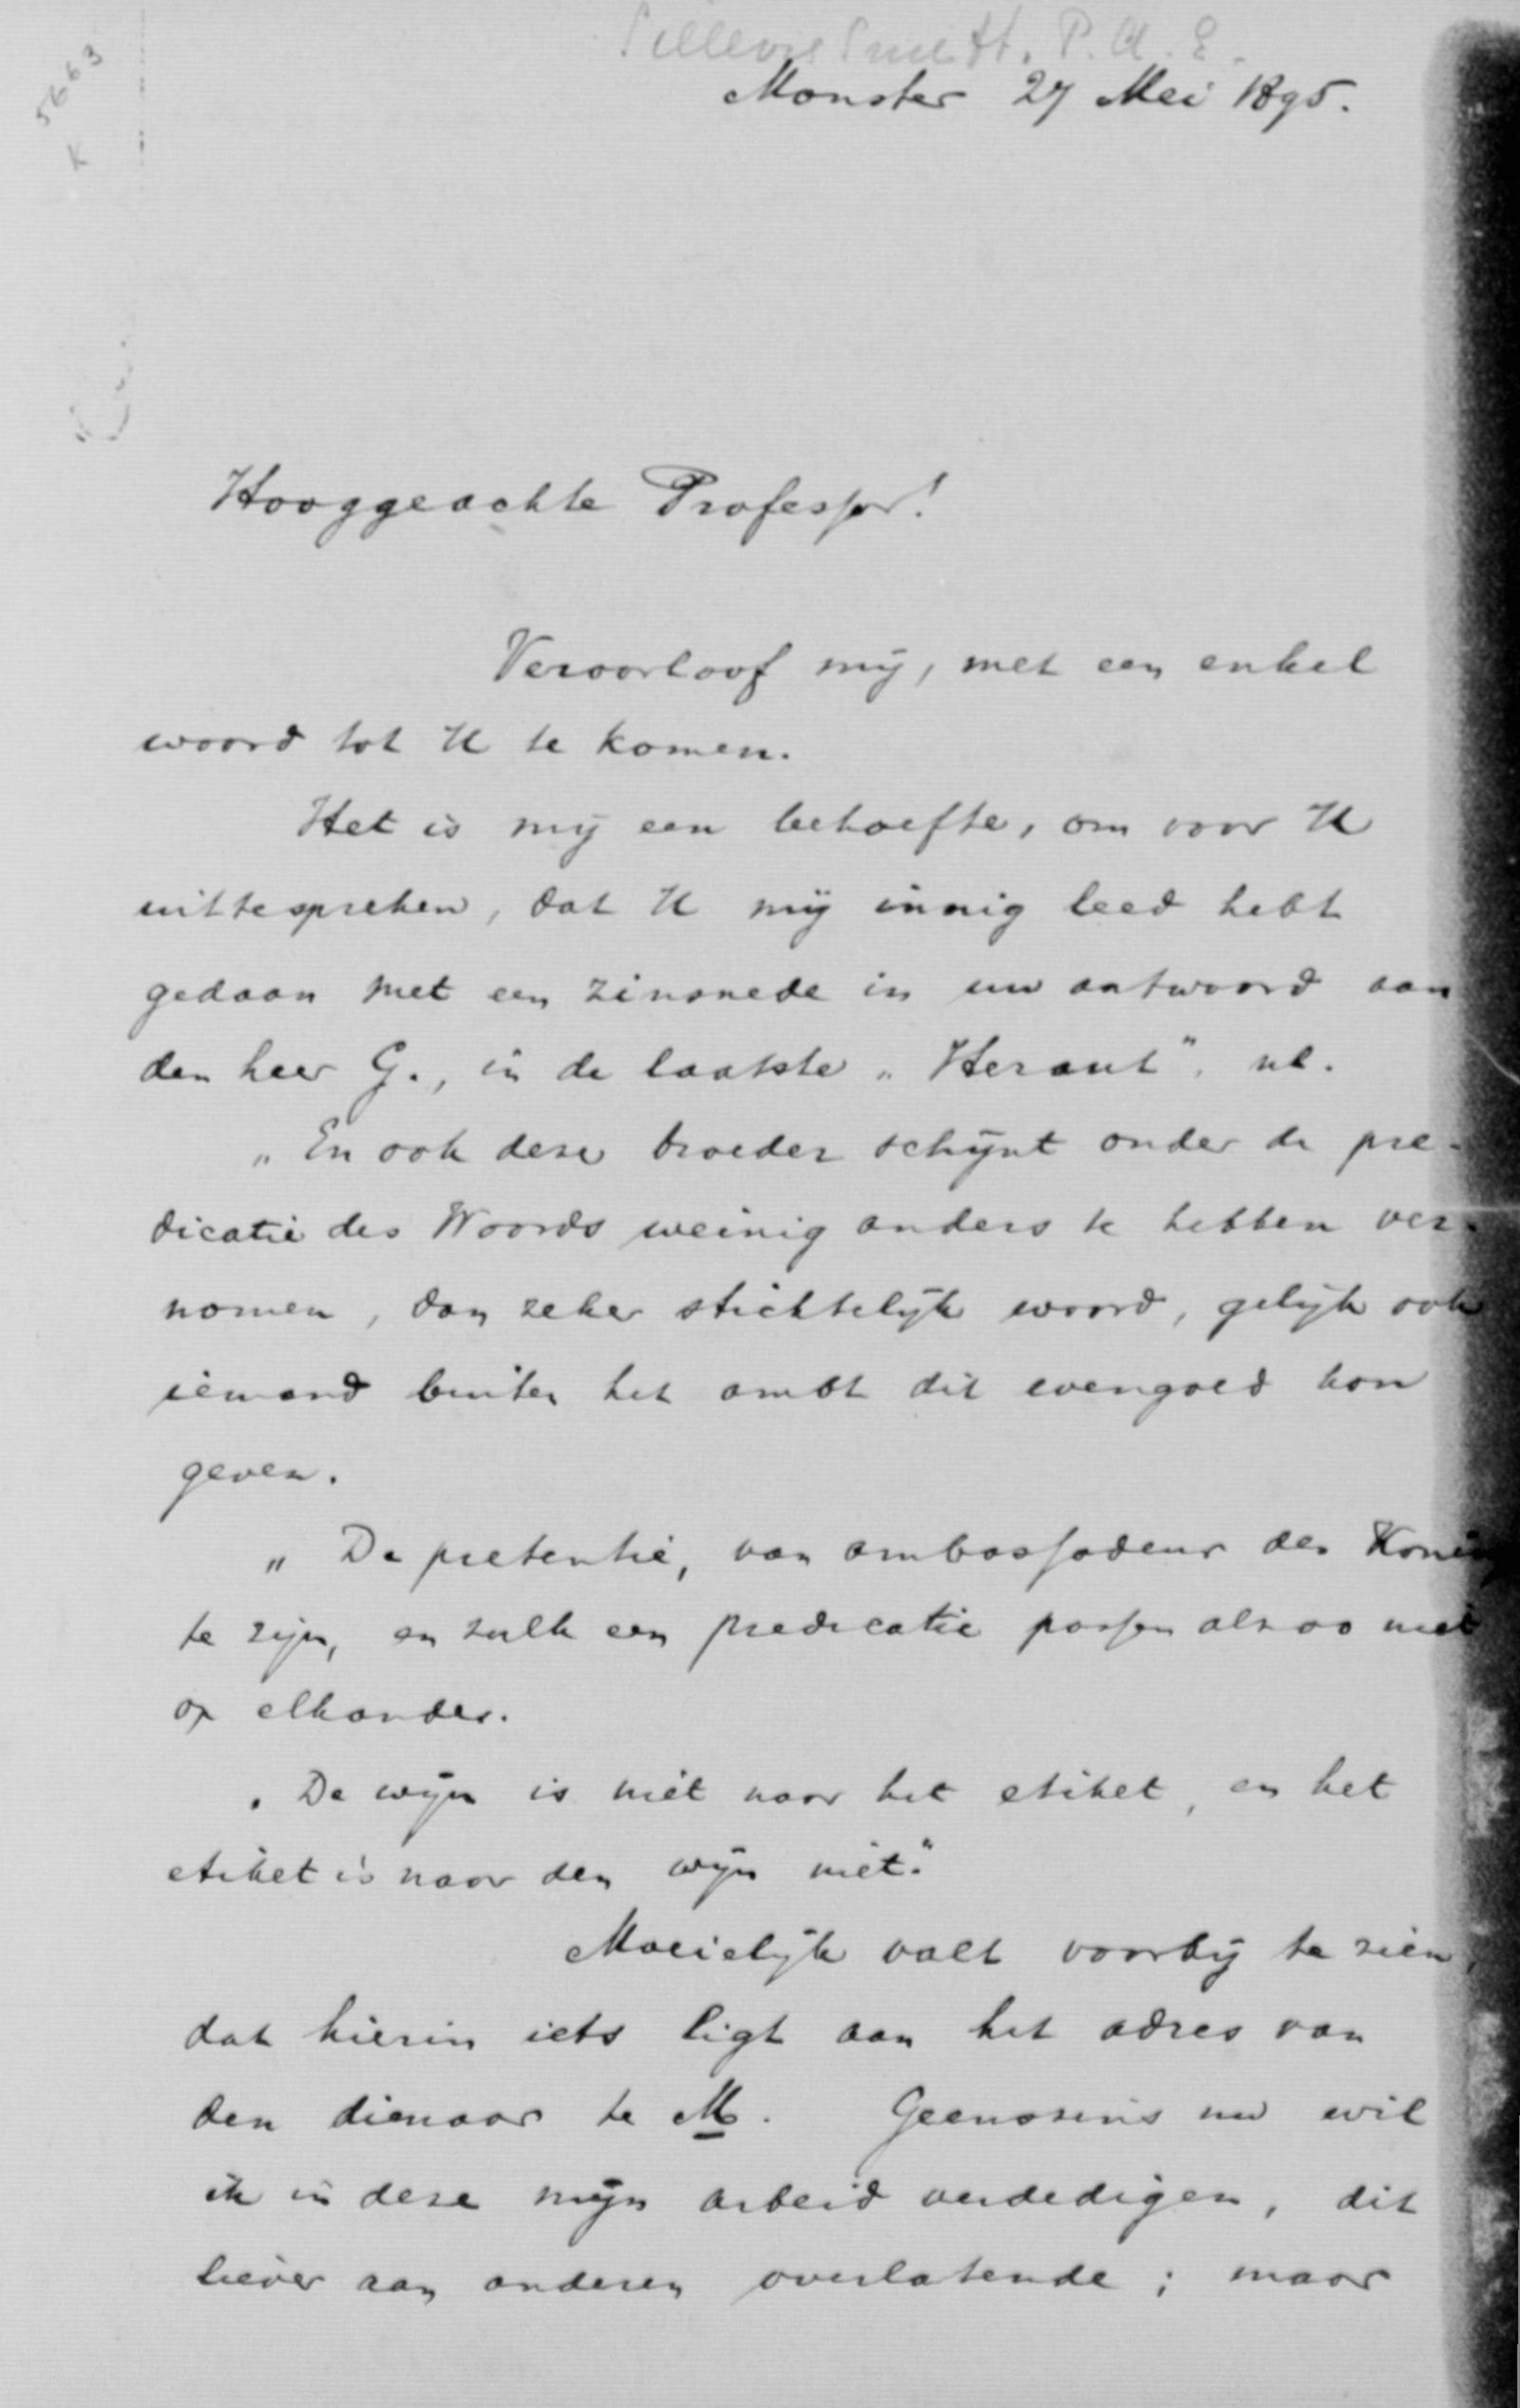 Sillevis Smitt, P.A.E.
5663
K
Monster 27 Mei 1895.
Hooggeachte Professor!
Veroorloof mij, met een enkel
woord tot U te komen.
Het is mij een behoefte, om voor U
uittespreken, dat U mij innig leed hebt
gedaan met een zinsnede in uw antwoord aan
den heer G., in de laatste „Heraut", nl.
„En ook deze broeder schijnt onder de pre-
dicatie des Woords weinig anders te hebben ver-
nomen, dan zeker stichtelijk woord, gelijk ook
iemand buiten het ambt dit evengoed kon
geven.
„De pretentie, van ambassadeur des Konings
te zijn, en zulk een predicatie passen alzoo niet
op elkander.
„De wijn is niet naar het etiket, en het
etiket is naar den wijn niet."
Moeielijk valt voorbij te zien,
dat hierin iets ligt aan het adres van
den dienaar te M. Geenszins nu wil
ik in deze mijn arbeid verdedigen, dit
liever aan anderen overlatende; maar